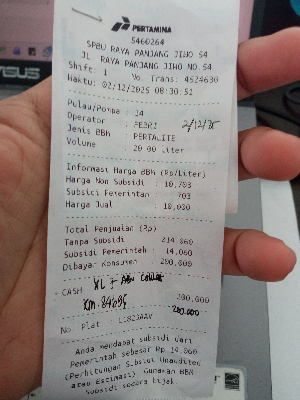 PERTAMINA
5460264
SPBU RAYA PANJANG JIWO 54
JL. RAYA PANJANG JIWO NO.54
Shift: 1 No Trans: 4524630
Waktu: 02/12/2025 08:30:51
Pulau/Pompa :
Operator : FEBRI 2/12/25
Jenis BBM : PERTALITE
Volume : 20.00 Liter
Informasi Harga BBM (Rp/Liter)
Harga Non Subsidi : 10,703
Subsidi Pemerintah : 703
Harga Jual : 10,000
Total Penjualan (Rp)
Tanpa Subsidi : 214,060
Subsidi Pemerintah : 14,060
Dibayar Konsumen : 200,000
CASH 200,000
XL 7
KM.
200.000
No Plat : L1823AAV
Anda mendapat subsidi dari
Pemerintah sebesar Rp 14,060
(Perhitungan Subsidi Unaudited
atau Estimasi). Gunakan BBM
Subsidi secara bijak.
ASUS